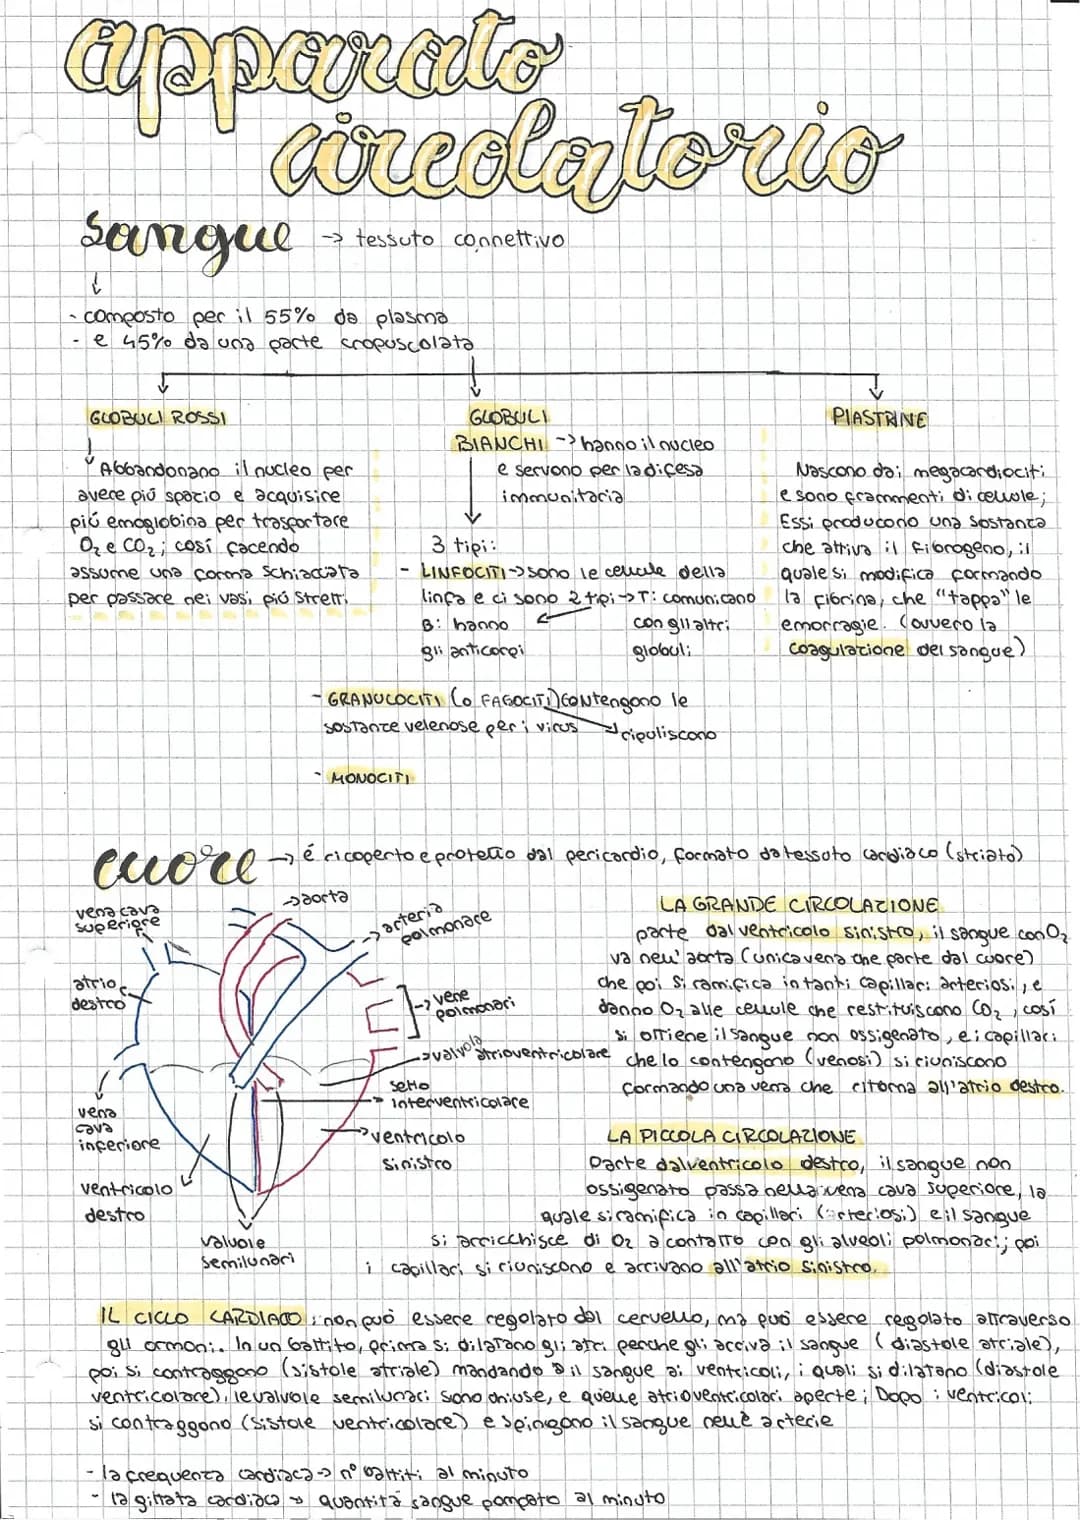 apparato
circolatorio
sangue → tessuto connettivo
- composto per il 55% da plasma
- e 45% da una parte cropuscolata
GLOBULI ROSSI
Abbandonano il nucleo per
avere piú spazio e acquisire
piú emoglobina per trasportare
O2 e CO2; cosí facendo
assume una forma schiacciata
per passare nei vasi piú stretti
GLOBULI
BIANCHI -> hanno il nucleo
e servono per la difesa
immunitaria
3 tipi:
- LINFOCITI -> sono le cellule della
linfa e ci sono 2 tipi -> T: comunicano
con gli altri
globuli
B: hanno
gli anticorpi
- GRANULOCITI (o FAGOCITI) contengono le
sostanze velenose per i virus
ripuliscono
- MONOCITI
PIASTRINE
Nascono dai megacardiociti
e sono frammenti di cellule;
Essi producono una sostanza
che attiva il fibrogeno, il
quale si modifica formando
la fibrina, che "tappa" le
emorragie. (ovvero la
coagulazione del sangue)
cuore → é ricoperto e protetto dal pericardio, formato da tessuto cardiaco (striato)
→ aorta
vena cava
superiore
→ arteria
polmonare
atrio
destro
→ vene
polmonari
→ valvola
atrioventricolare
setto
→ interventricolare
vena
cava
inferiore
→ ventricolo
sinistro
ventricolo
destro
valvole
semilunari
LA GRANDE CIRCOLAZIONE
parte dal ventricolo sinistro, il sangue con O2
va nell'aorta (unica vena che parte dal cuore)
che poi si ramifica in tanti capillari arteriosi, e
danno O2 alle cellule che restituiscono CO2, cosí
si ottiene il sangue non ossigenato, e i capillari
che lo contengono (venosi) si riuniscono
formando una vena che ritorna all'atrio destro.
LA PICCOLA CIRCOLAZIONE
Parte dal ventricolo destro, il sangue non
ossigenato passa nella vena cava superiore, la
quale si ramifica in capillari (arteriosi) e il sangue
si arricchisce di O2 a contatto con gli alveoli polmonari; poi
i capillari si riuniscono e arrivano all'atrio sinistro.
IL CICLO CARDIACO: non può essere regolato dal cervello, ma può essere regolato attraverso
gli ormoni. In un battito, prima si dilatano gli atri perche gli arriva il sangue (diastole atriale),
poi si contraggono (sistole atriale) mandando il sangue ai ventricoli, i quali si dilatano (diastole
ventricolare), le valvole semilunari sono chiuse, e quelle atrioventricolari aperte; Dopo i ventricoli
si contraggono (sistole ventricolare) e spingono il sangue nelle arterie
- la frequenza cardiaca → n° battiti al minuto
- la gittata cardiaca → quantitá sangue pompato al minuto